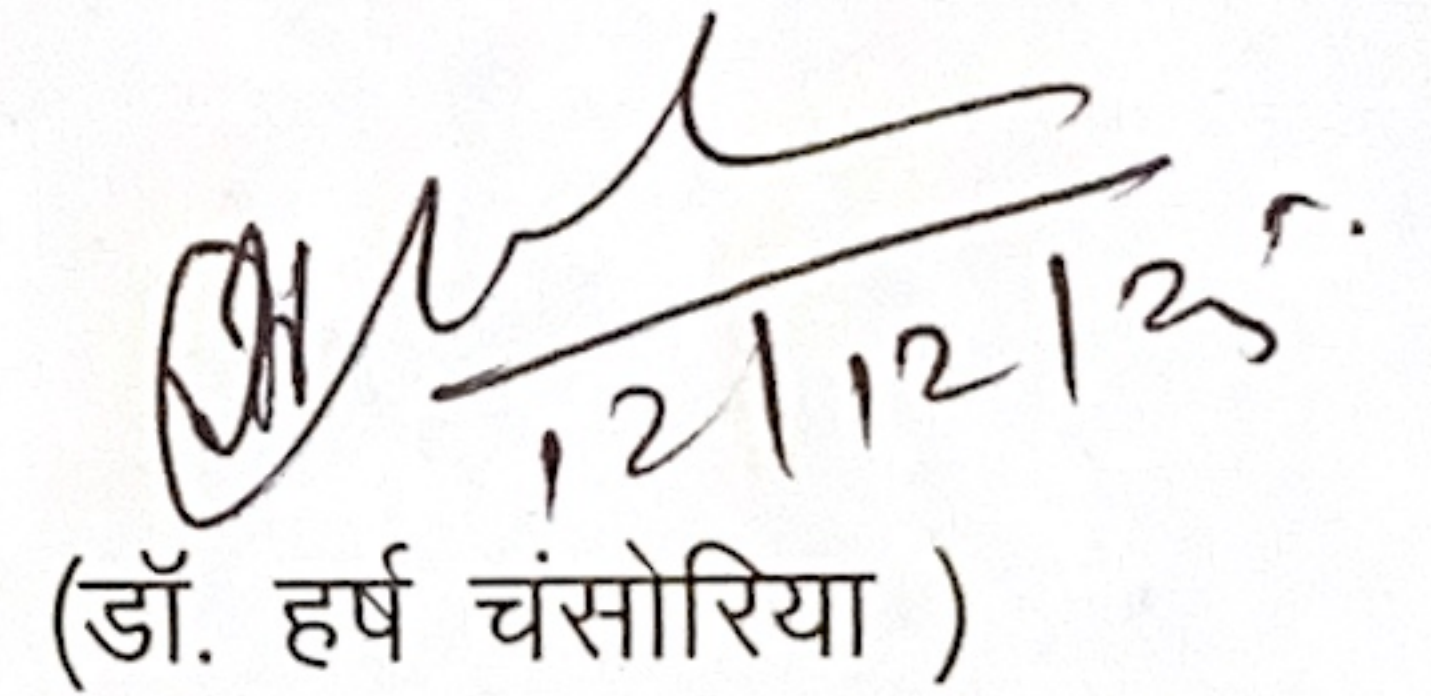 12/12/25
(डॉ. हर्ष चंसोरिया )